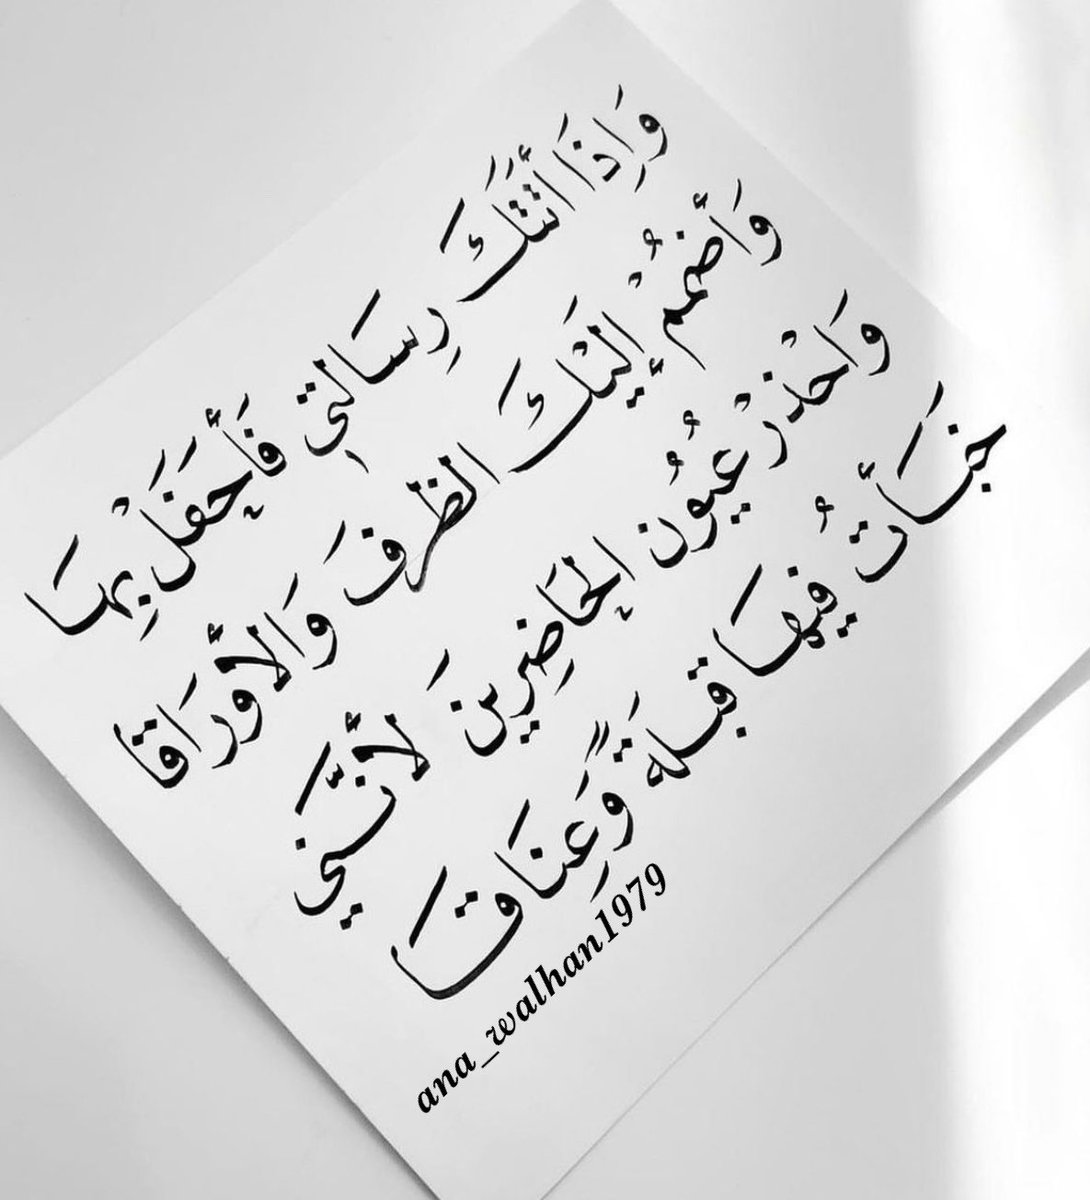 وَإِذَا أَتَتَكَ رِسَالتِي فَأَحفَلْ بِهَا
وَأضْمُمْ إِلَيْكَ الظَرفَ وَالأَورَاقا
وَاحْذَرْ عُيُونَ الحَاضِرِينَ لأَنَّنِي
خَبَّأتُ فِيهَا قبلَةً وَعِنَاقَا
ana_walhan1979